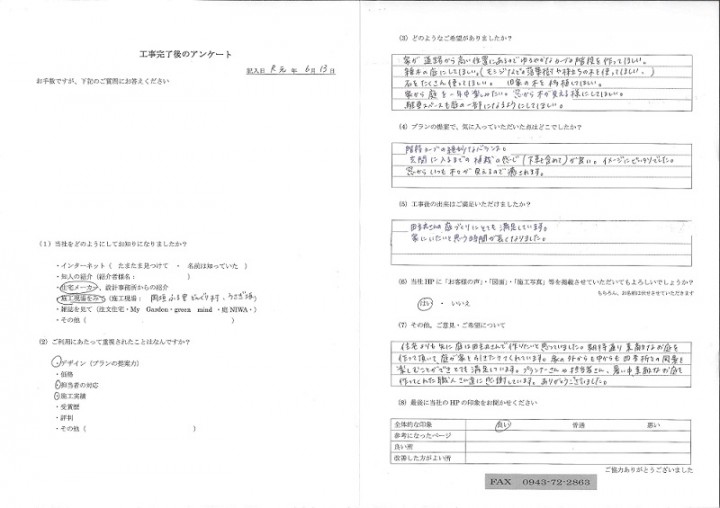 工事完了後のアンケート
記入日 R元 年 6月 13日
お手数ですが、下記のご質問にお答えください
(1) 当社をどのようにしてお知りになりましたか?
・インターネット ( たまたま見つけて ・ 名前は知っていた )
・知人の紹介 (紹介者様名: )
・住宅メーカー、設計事務所からの紹介
・施工現場をみて (施工現場:
・雑誌を見て (注文住宅・My Garden・green mind ・庭NIWA・)
・その他 ( )
(2) ご利用にあたって重視されたことはなんですか?
・デザイン (プランの提案力)
・価格
・担当者の対応
・施工実績
・受賞歴
・評判
・その他 ( )
(3) どのようなご希望がありましたか?
家が道路から高い位置にあるのでゆるやかなカーブの階段を作ってほしい。
雑木の庭にしてほしい。
石をたくさん使ってほしい。
家から庭を一年中楽しみたい。窓から木が見える様にしてほしい。
駐車スペースも庭の一部になるようにしてほしい。
(4) プランの提案で、気に入っていただいた点はどこでしたか?
階段カーブの絶妙なバランスと
玄関に入るまでの植栽の感じ(下草も含めて)が良い。イメージにピッタリでした。
窓からいつも木々が見えるので癒されます。
(5) 工事後の出来はご満足いただけましたか?
庭づくりにとても満足しています。
家にいたいと思う時間が長くなりました。
(6) 当社HPに「お客様の声」・「図面」・「施工写真」等を掲載させていただいてもよろしいでしょうか?
もちろん、お名前は伏せさせていただきます
はい ・ いいえ
(7) その他、ご意見・ご希望について
作って頂いて、庭が家を引きたててくれています。家の外からも中からも四季折々の風景を
楽しむことができとても満足しています。プランナーさんの担当者さん、暑い中素敵なお庭を
作ってくれた職人さん達に感謝しています。ありがとうございました。
(8) 最後に当社のHPの印象をお聞かせください
全体的な印象 良い 普通 悪い
参考になったページ
良い所
改善した方がよい所
ご協力ありがとうございました
FAX 0943-72-2863